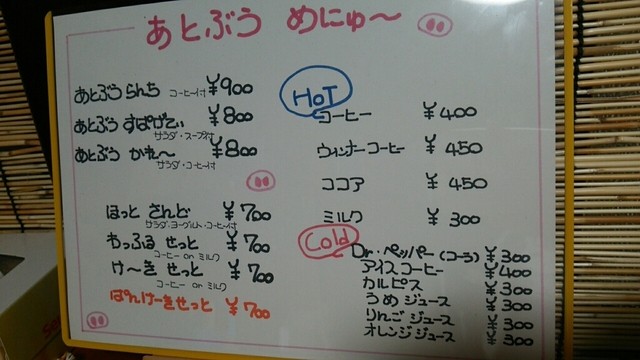 あとぶう めにゅ〜
あとぶう らんち コーヒー付 ¥900
あとぶう すぱげてぃ ¥800
サラダ・スープ付
あとぶう かれ〜 ¥800
サラダ・コーヒー付
ほっと さんど ¥700
サラダ・ヨーグルト・コーヒー付
わっふる せっと ¥700
コーヒー or ミルク
け〜き せっと ¥700
コーヒー or ミルク
ぱんけーきせっと ¥700
HOT
コーヒー ¥400
ウィンナーコーヒー ¥450
ココア ¥450
ミルク ¥300
Cold
Dr・ペッパー(コーラ) ¥300
アイスコーヒー ¥400
カルピス ¥300
うめジュース ¥300
りんごジュース ¥300
オレンジジュース ¥300